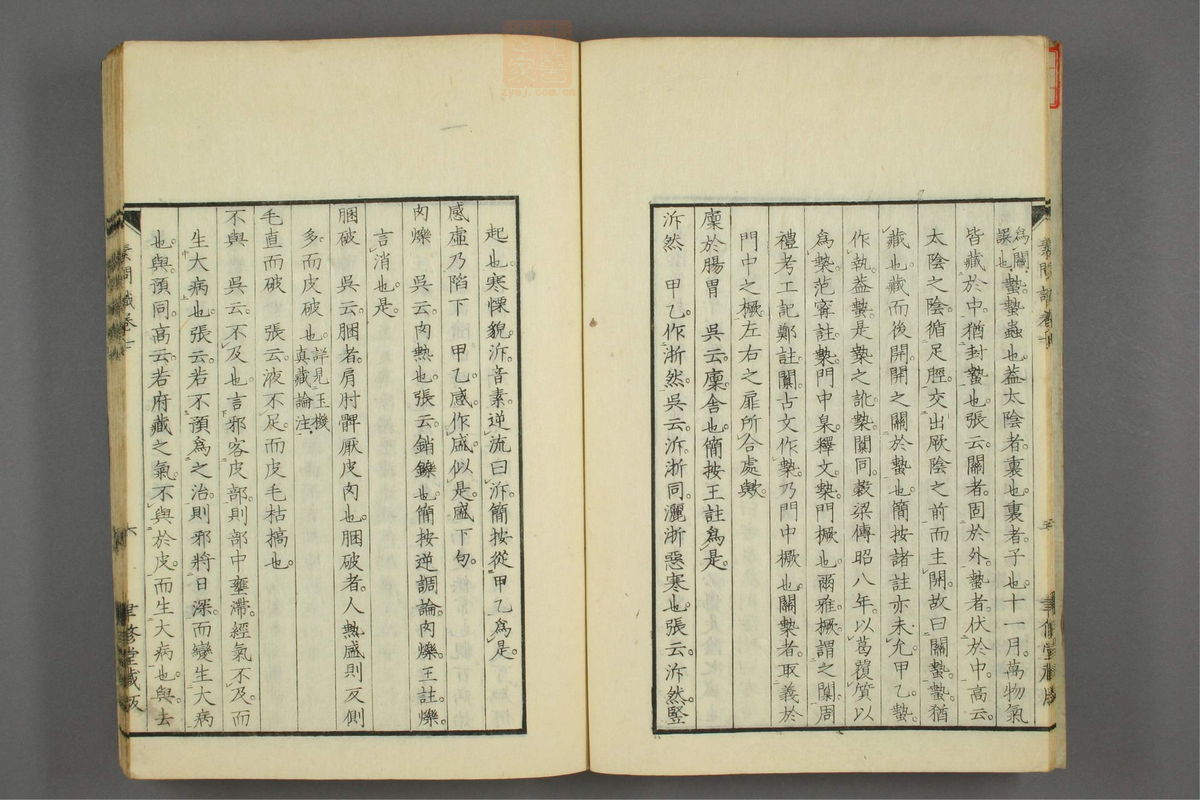 為關
誤也蟄蟲也蓋太陰者裏也裏者子也十一月萬物氣
皆藏於中猶封蟄也張云關者固於外蟄者伏於中高云
太陰之陰循足脛交出厥陰之前而主開故曰關蟄蟄猶
藏也藏而後開開之關於蟄也簡按諸註亦未允甲乙蟄
作執蓋蟄是槷之訛槷闑同穀梁傳昭八年以葛覆質以
為槷范寗註槷門中臬釋文槷門橛也爾雅橛謂之闑周
禮考工記鄭註闑古文作槷乃門中橛也關槷者取義於
門中之橛左右之扉所合處歟
廩於腸胃 吳云廩舍也簡按王註為是
泝然 甲乙作淅然吳云泝淅同灑淅惡寒也張云泝然豎
素問識卷七
六
聿修堂藏板
起也寒慄貌泝音素逆流曰泝簡按從甲乙為是
感虛乃陷下 甲乙感作盛似是盛下句
肉爍 吳云肉熱也張云銷鑠也簡按逆調論肉爍王註爍
言消也是
䐃破 吳云䐃者肩肘髀厭皮肉也䐃破者人熱盛則反側
多而皮破也詳見玉機
真藏論注
毛直而破 張云液不足而皮毛枯槁也
不與 吳云不及也言邪客皮部則部中壅滯經氣不及而
生大病也張云若不預為之治則邪將日深而變生大病
也與預同高云若府藏之氣不與於皮而生大病也與去